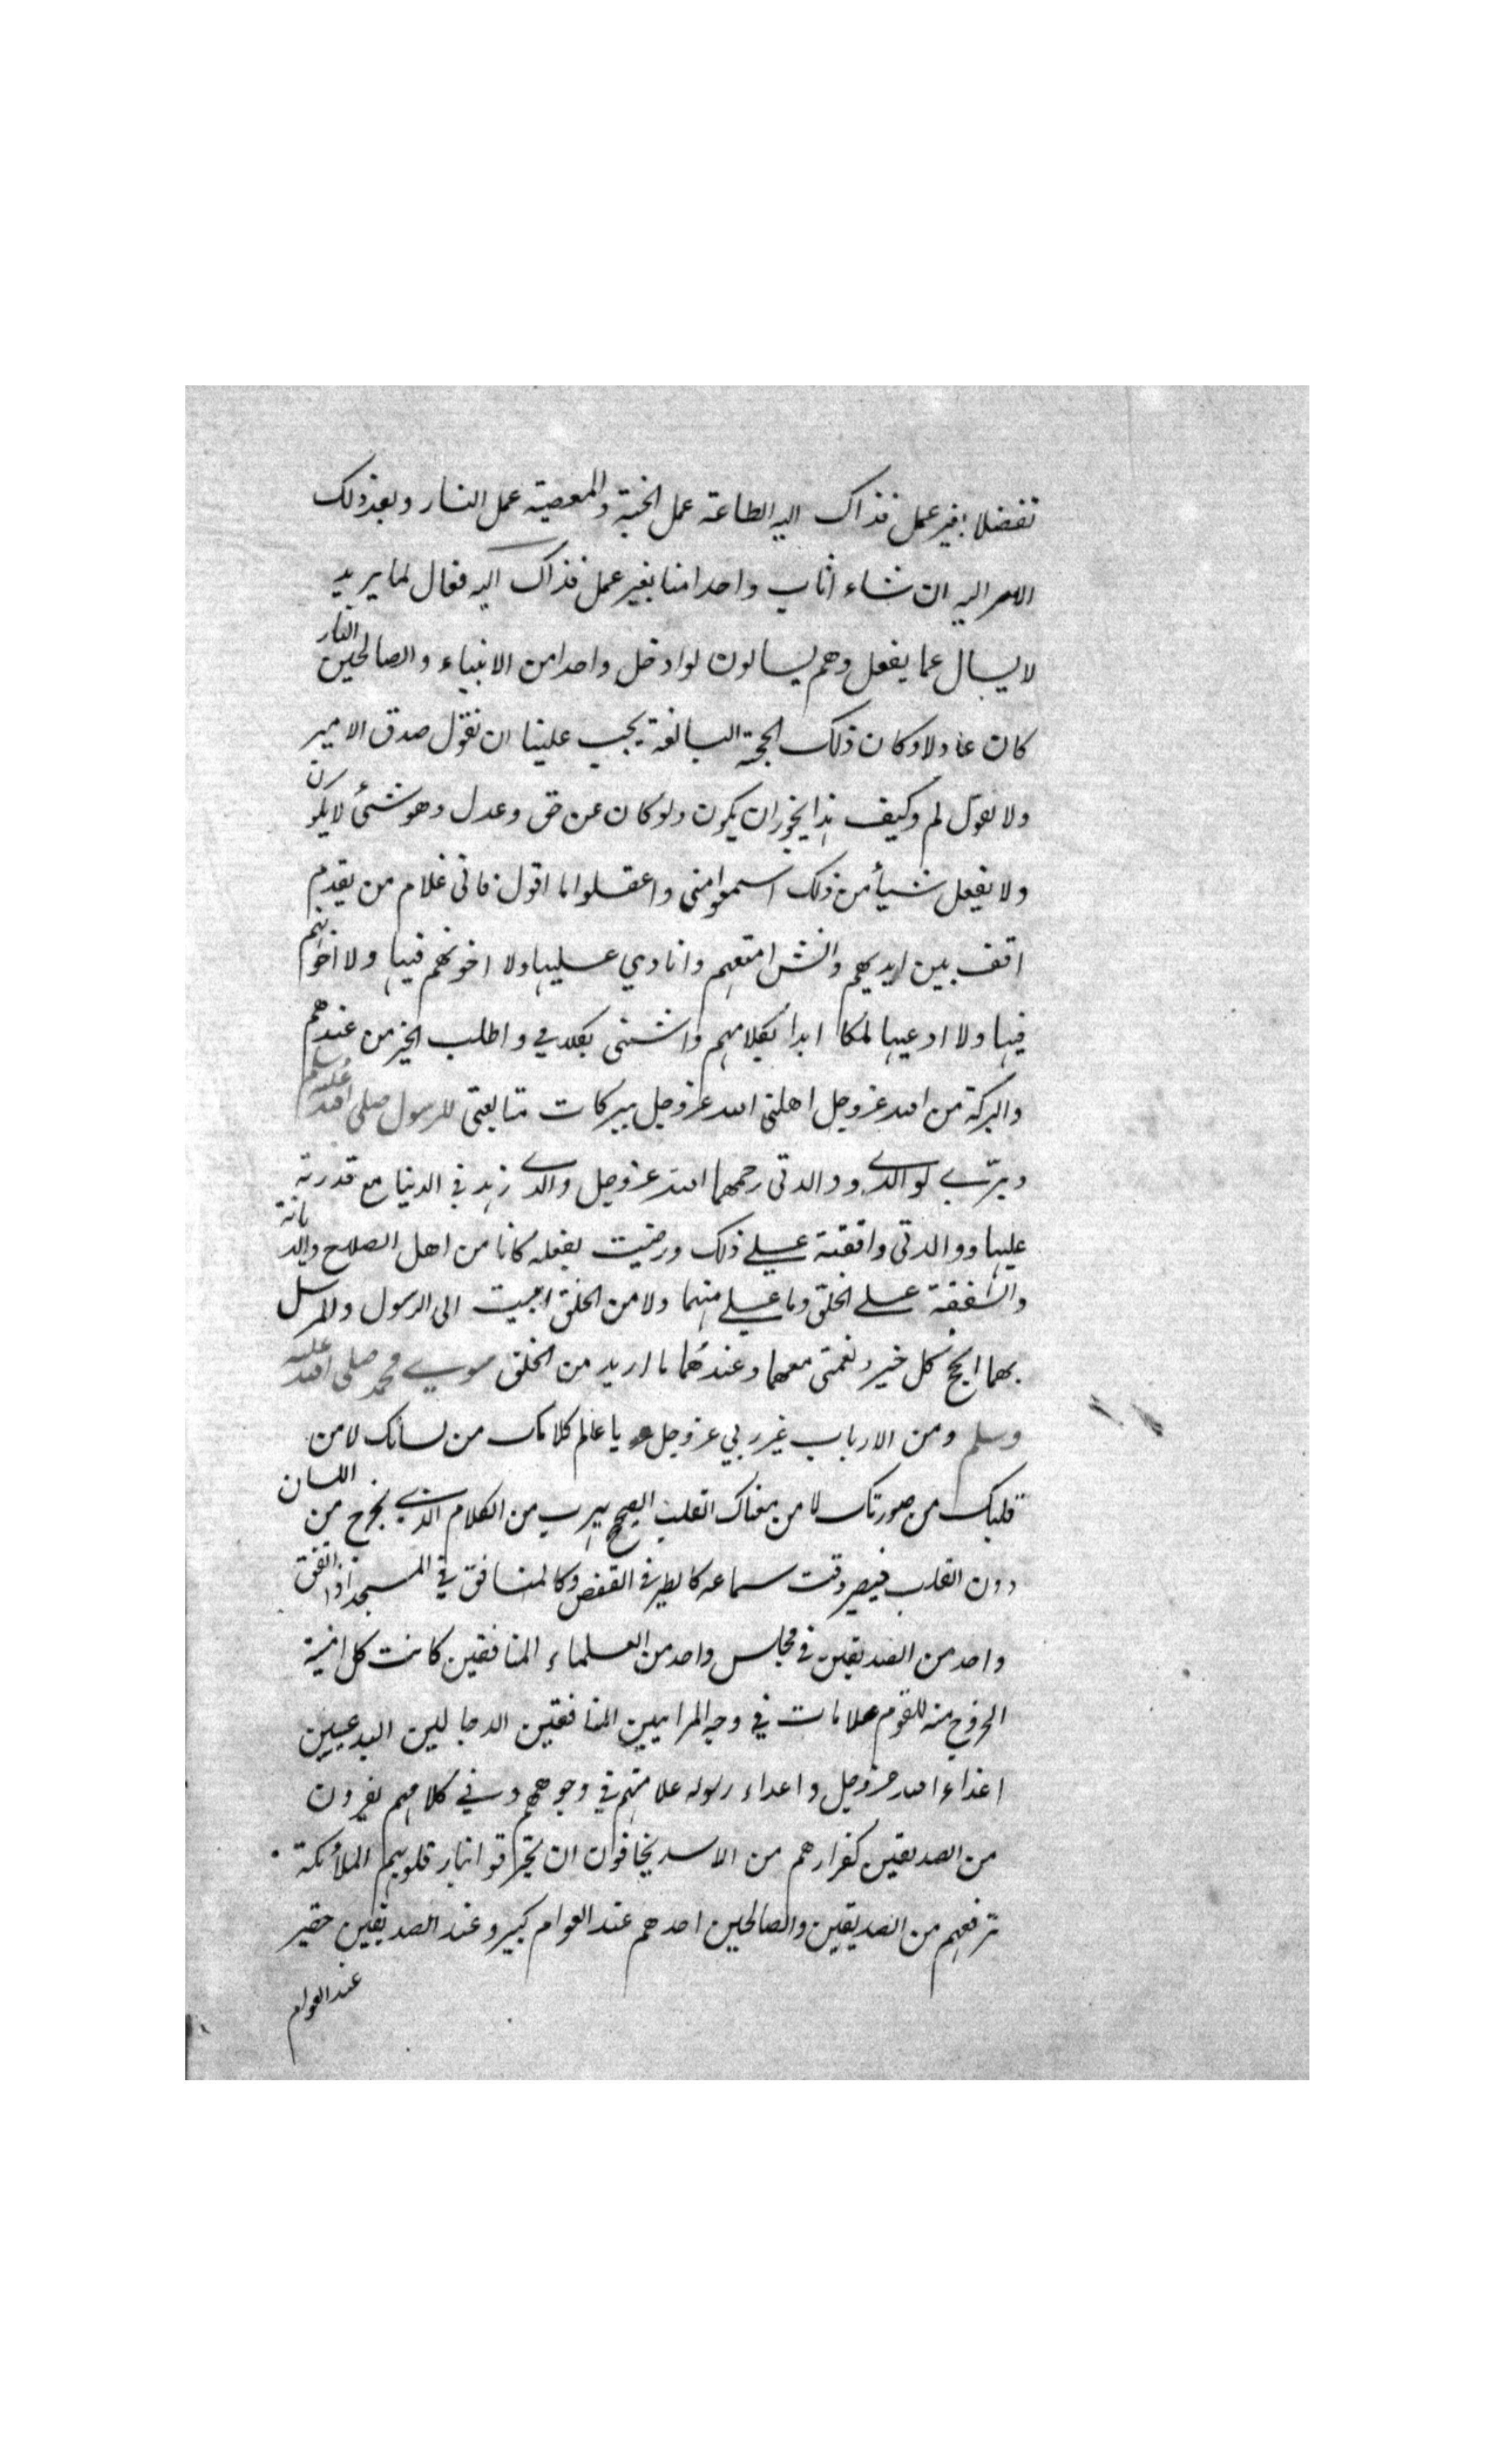 تفضلا بغير عمل فذاك اليه الطاعة عمل الجنة والمعصية عمل النار وبعد ذلك
الامر اليه ان شاء اثاب واحدا منا بغير عمل فذاك اليه فعال لما يريد
لا يسال عما يفعل وهم يسالون لو ادخل واحدا من الانبياء والصالحين النار
كان عادلا وكان ذلك الحجة البالغة يجب علينا ان نقول صدق الامير
ولا نقول لم وكيف هذا يجوز ان يكون ولو كان عن حق وعدل وهو شئ لا يكون
ولا يفعل شيأ من ذلك اسمعوا منى واعقلوا ما اقول فانى غلام من يقدم
اقف بين ايديهم وانشر امتعهم وانادي عليها ولا اخونهم فيها ولا اخونهم
فيها ولا ادعيها لمكا ابدأ بكلامهم واثنى بكلامي واطلب الخير من عندهم
والبركة من الله عز وجل اهلنى الله عز وجل ببركات متابعتى للرسول صلى الله عليه وسلم
وبرّي لوالدي ووالدتى رحمهما الله عز وجل والدي زهد في الدنيا مع قدرته
عليها ووالدتى وافقته على ذلك ورضيت بفعله كانا من اهل الصلاح والديانة
والشفقة على الخلق وما على منهما ولا من الخلق اتيت الى الرسول والمرسل
بهما انجح كل خير ونعمتى معهما وعندهما ما اريد من الخلق سوي محمد صلى الله عليه
وسلم ومن الارباب غير ربي عز وجل يا عالم كلامك من لسانك لا من
قلبك من صورتك لا من معناك القلب الصحيح يهرب من الكلام الذي يخرج من اللسان
دون القلب فيصير وقت سماعه كالطير في القفص وكالمنافق في المسجد اذا اتفق
واحد من الصديقين في مجلس واحد من العلماء المنافقين كانت كل امنية
الخروج منه للقوم علامات في وجه المرايين المنافقين الدجالين البدعيين
اعداء الله عز وجل واعداء رسوله علامتهم في وجوههم وفي كلامهم يفرون
من الصديقين كفرارهم من الاسد يخافون ان يحترقوا بنار قلوبهم الملأئكة
ترفعهم من الصديقين والصالحين احدهم عند العوام كبير وعند الصديقين حقير
عند العوام